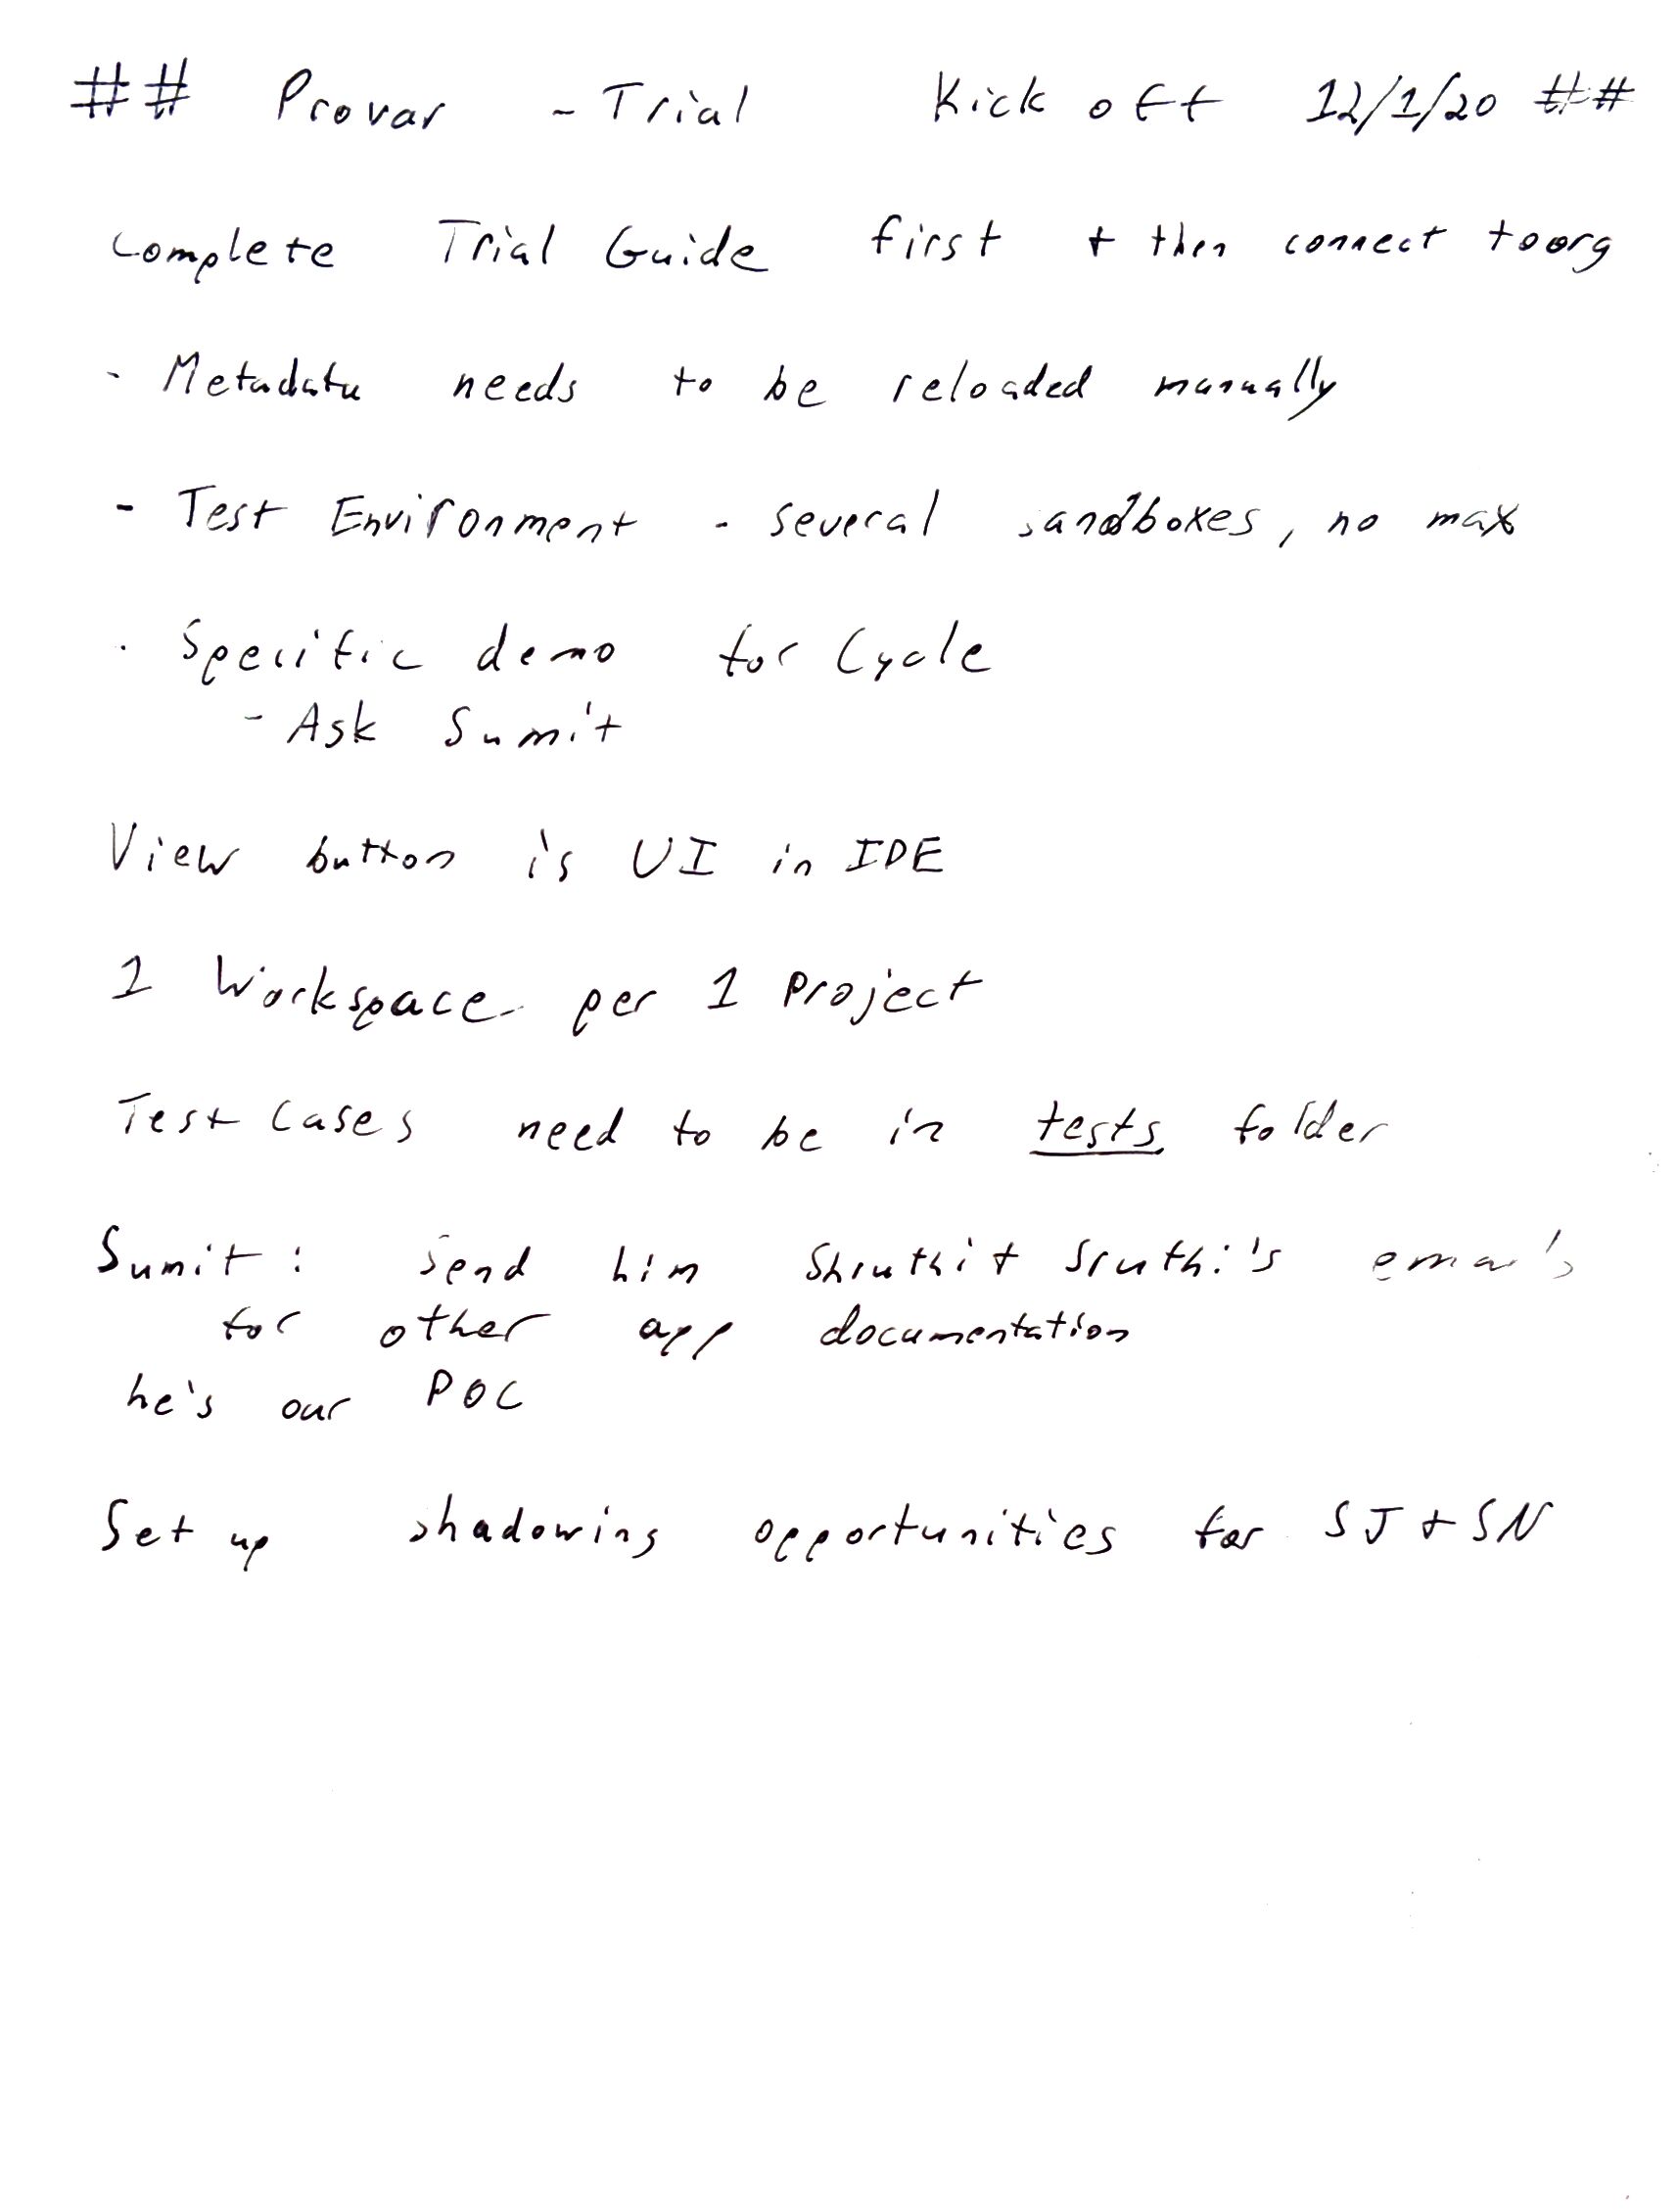 ## Provar - Trial Kick off 12/1/20 ##
Complete Trial Guide first + then connect to org
- Metadata needs to be reloaded manually
- Test Environment - several sandboxes, no max
- Specific demo for Cycle
- Ask Sumit
View button is UI in IDE
1 Workspace per 1 project
Test Cases need to be in tests folder
Sumit: Send him Shruthi + Sruthi's emails
for other app documentation
he's our POC
Set up shadowing opportunities for SJ + SN